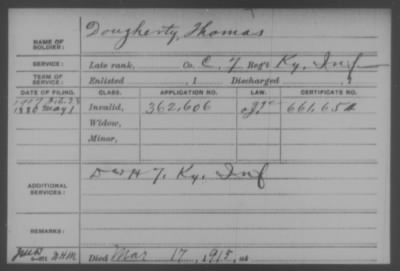 NAME OF SOLDIER: Dougherty, Thomas
SERVICE: Late rank, Co. C, 7 Reg't Ky. Inf
TERM OF SERVICE: Enlisted , 1 Discharged , 1
DATE OF FILING. CLASS. APPLICATION NO. LAW. CERTIFICATE NO.
1880 May 1 Invalid, 362,606 661,652
Widow,
Minor,
ADDITIONAL SERVICES: D & H 7. Ky. Inf
REMARKS:
Died Mar 17, 1915, at